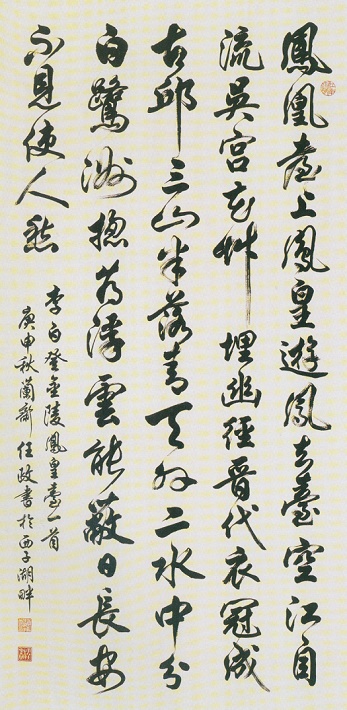 鳳凰臺上鳳皇遊鳳去臺空江自
流吳宮花草埋幽徑晉代衣冠成
古邱三山半落青天外二水中分
白鷺洲總為浮雲能蔽日長安
不見使人愁
李白登金陵鳳皇臺一首
庚申秋蘭齋任政書於西子湖畔